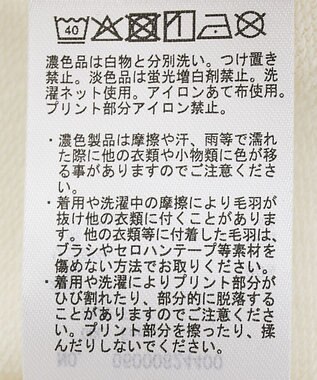 40
濃色品は白物と分別洗い。つけ置き
禁止。淡色品は蛍光増白剤禁止。洗
濯ネット使用。アイロンあて布使用。
プリント部分アイロン禁止。
・濃色製品は摩擦や汗、雨等で濡れ
た際に他の衣類や小物類に色が移
る事がありますのでご注意くださ
い。
・着用や洗濯中の摩擦により毛羽が
抜け他の衣類に付くことがありま
す。他の衣類等に付着した毛羽は、
ブラシやセロハンテープ等素材を
傷めない方法でお取りください。
・着用や洗濯によりプリント部分が
ひび割れたり、部分的に脱落する
ことがありますのでご注意くださ
い。プリント部分を擦ったり、揉
んだりしないでください。